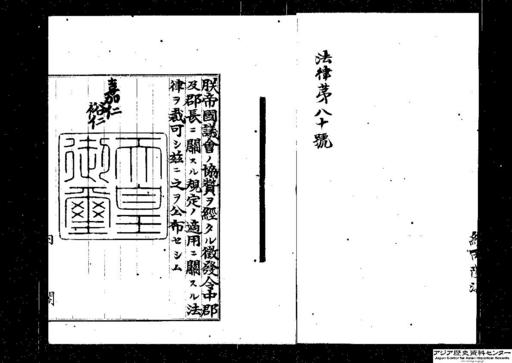 法律第八十號
朕帝國議會ノ協贊ヲ經タル徵發令中郡
及郡長ニ關スル規定ノ適用ニ關スル法
律ヲ裁可シ玆ニ之ヲ公布セシム
嘉仁
裕仁
天皇
御璽
内閣
アジア歴史資料センター
Japan Center for Asian Historical Records